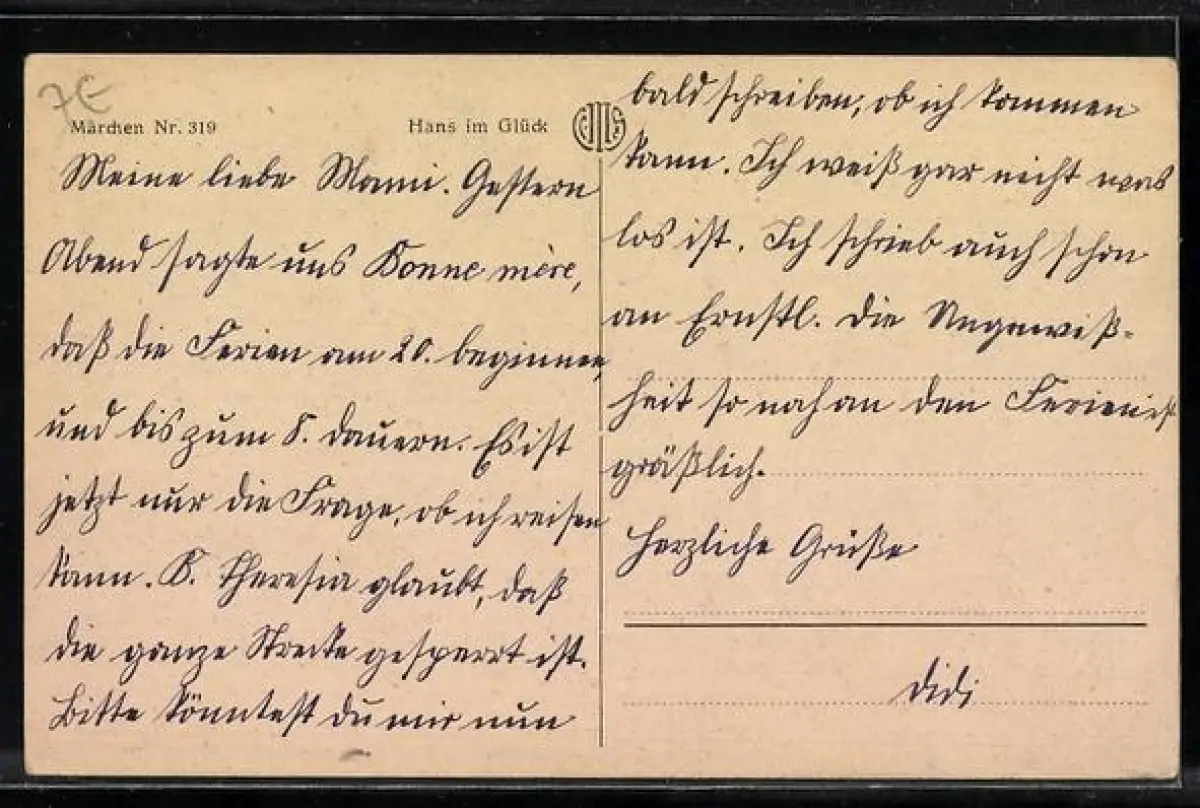 7€
Märchen Nr. 319
Hans im Glück
Meine liebe Mami. Gestern
Abend sagte uns Bonne mère,
daß die Ferien am 20. beginnen,
und bis zum 8. dauern. Es ist
jetzt nur die Frage, ob ich reisen
kann. B. Theresia glaubt, daß
die ganze Strecke gesperrt ist.
Bitte könntest du mir nun
bald schreiben, ob ich kommen
kann. Ich weiß gar nicht was
los ist. Ich schrieb auch schon
an Ernstl. Die Ungewiß-
heit so nah an den Ferien ist
gräßlich.
Herzliche Grüße
Didi